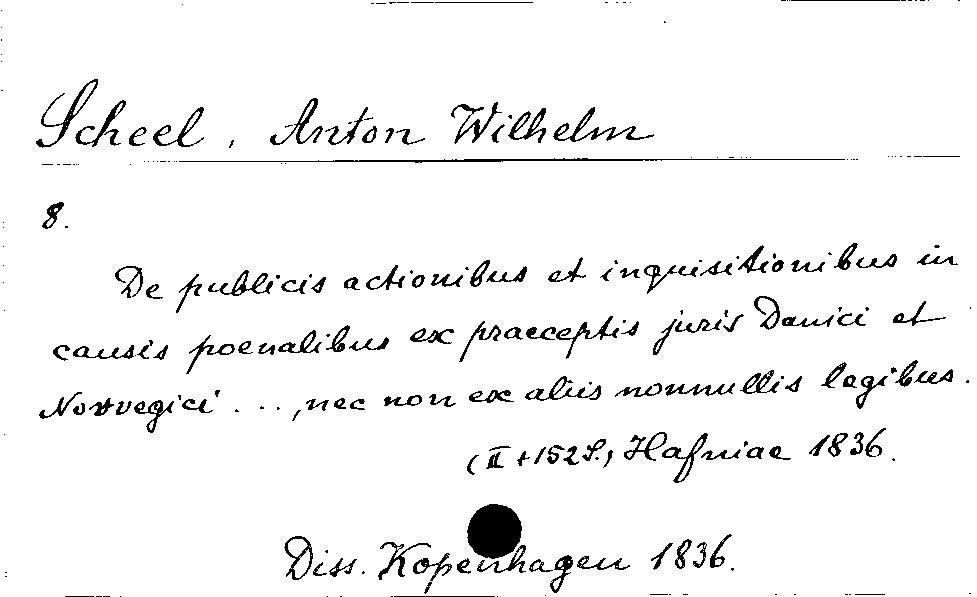 Scheel, Anton Wilhelm
8.
De publicis actionibus et inquisitionibus in
causis poenalibus ex praeceptis juris Danici et
Norvegici ..., nec non ex aliis nonnullis legibus.
(II + 152 S.) Hafniae 1836.
Diss. Kopenhagen 1836.